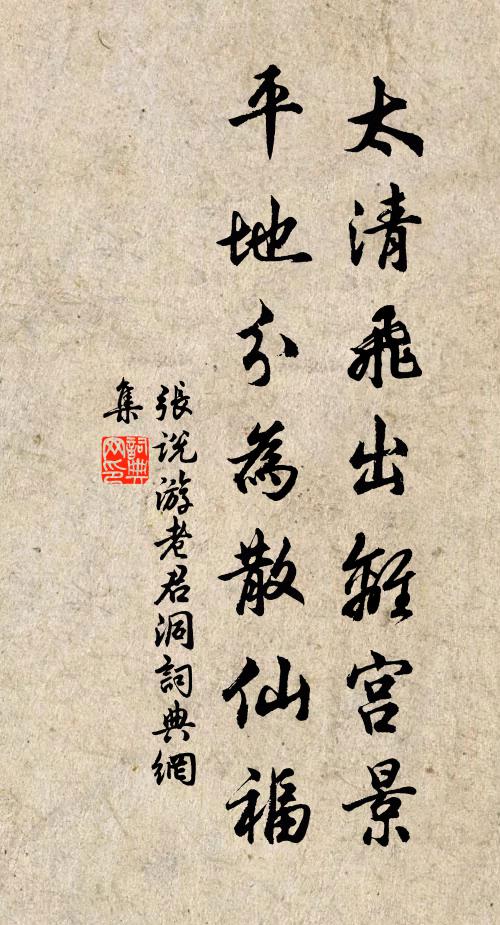 太清飛出離宮景
平地分為散仙福
張說游老君洞詞典網
集
詞典網印